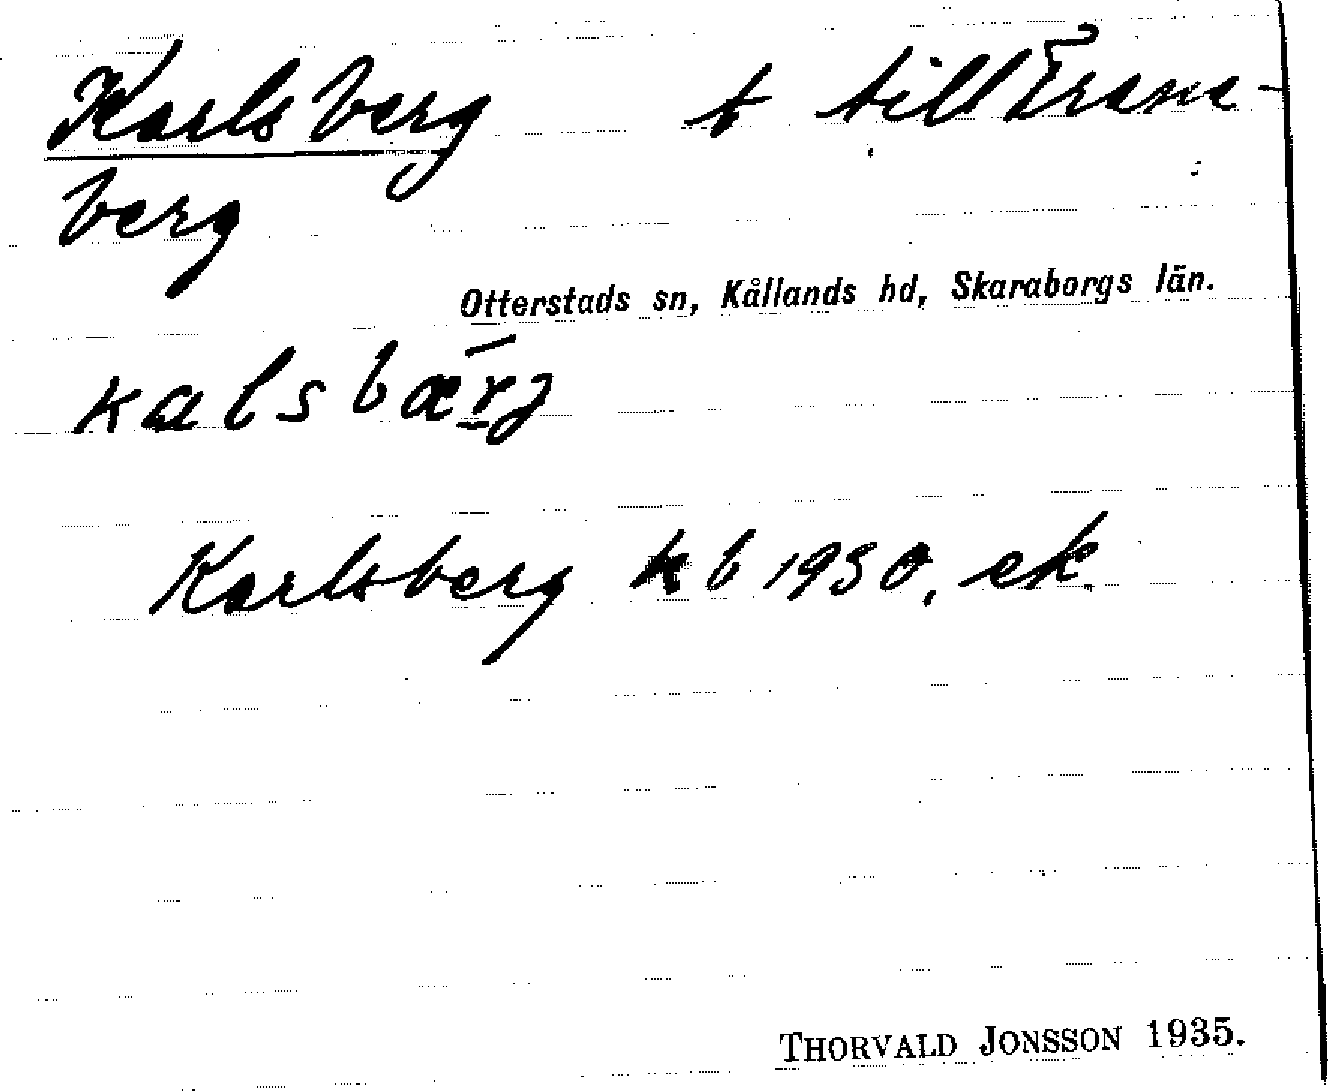 Karlsberg t till Trane-
berg
Otterstads sn, Kållands hd, Skaraborgs län.
kalsbærj
Karlsberg kb 1930, ek.
THORVALD JONSSON 1935.